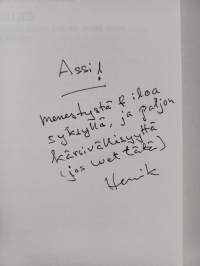 Assi!
menestystä & iloa
syksyllä, ja paljon
kärsivällisyyttä
(jos luet tätä)
Henrik